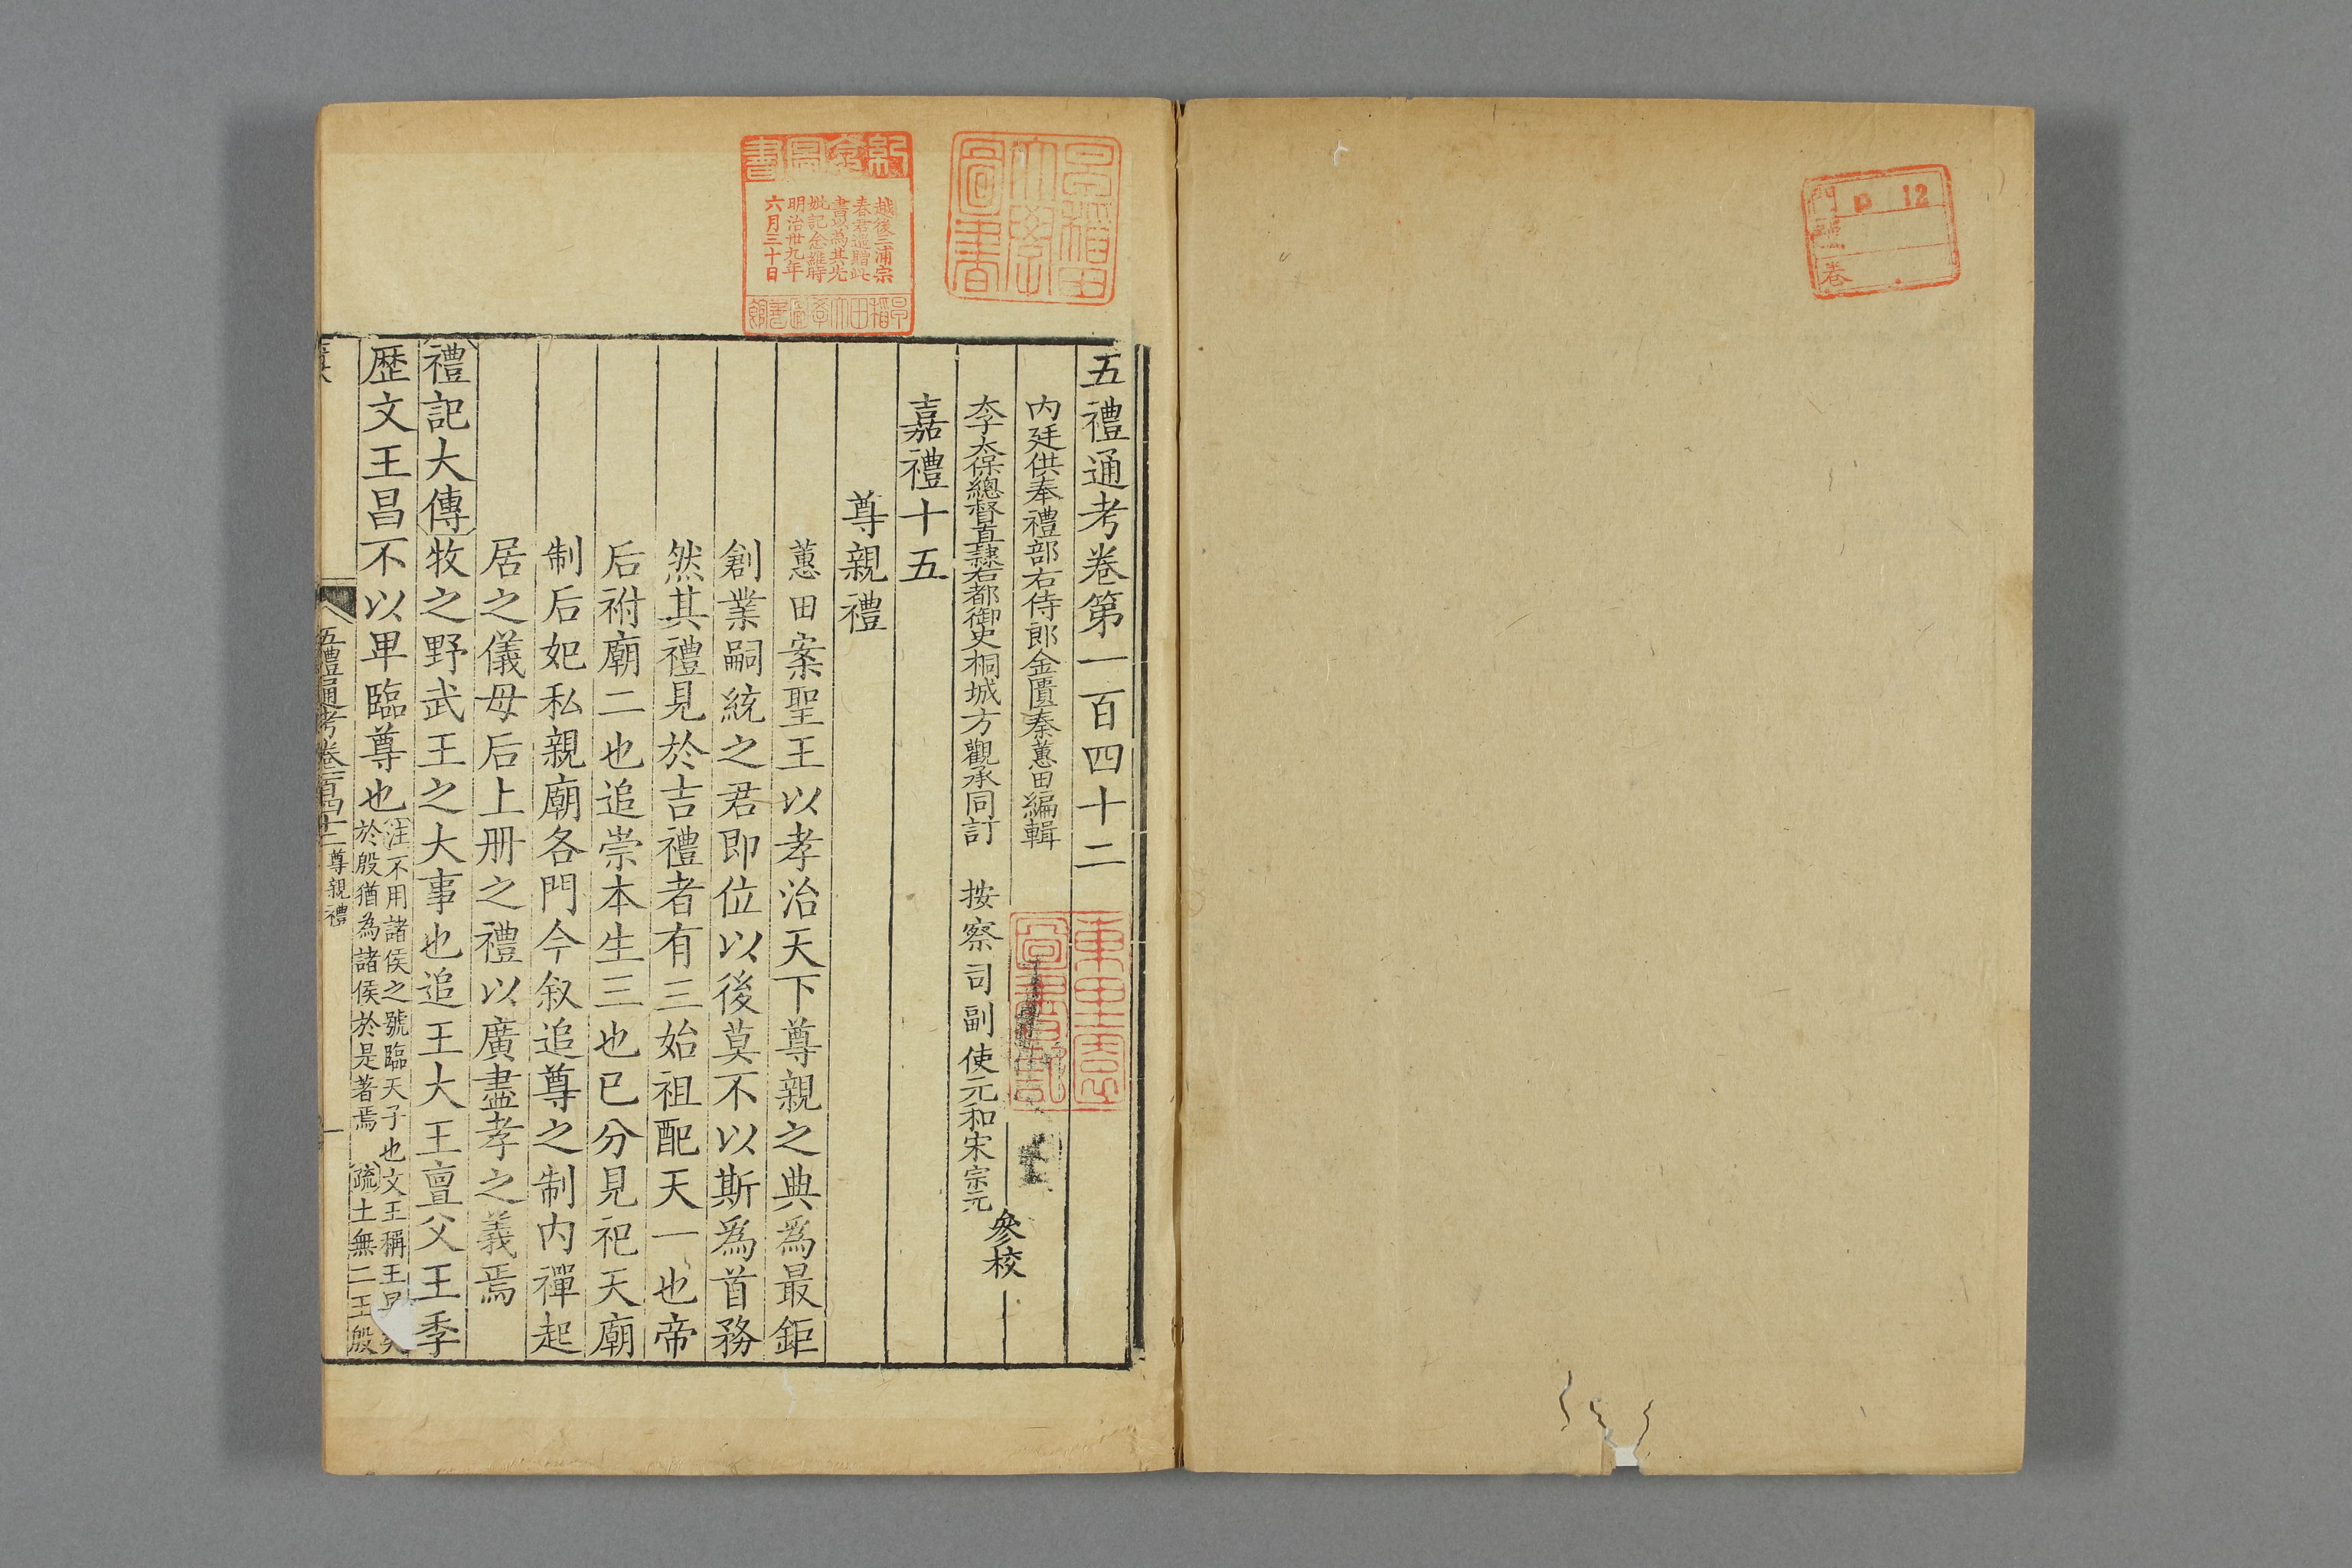 五禮通考卷第一百四十二
内廷供奉禮部右侍郎金匱秦蕙田編輯
太子太保總督直隷右都御史桐城方觀承同訂 按察司副使元和宋宗元 參校
嘉禮十五
尊親禮
蕙田案聖王以孝治天下尊親之典爲最鉅
創業嗣統之君即位以後莫不以斯爲首務
然其禮見於吉禮者有三始祖配天一也帝
后祔廟二也追崇本生三也已分見祀天廟
制后妃私親廟各門今叙追尊之制内禪起
居之儀母后上冊之禮以廣盡孝之義焉
禮記大傳牧之野武王之大事也追王大王亶父王季
歴文王昌不以卑臨尊也
注不用諸侯之號臨天子也文王稱王早矣
於殷猶為諸侯於是著焉 疏土無二王殷
五禮通考卷一百四十二 尊親禮
一
早稲田大學圖書
紀念圖書
越後三浦宗
春君遥贈此
書以為其先
妣記念維時
明治卅九年
六月三十日
早稲田大學圖書館
門 12
號
卷